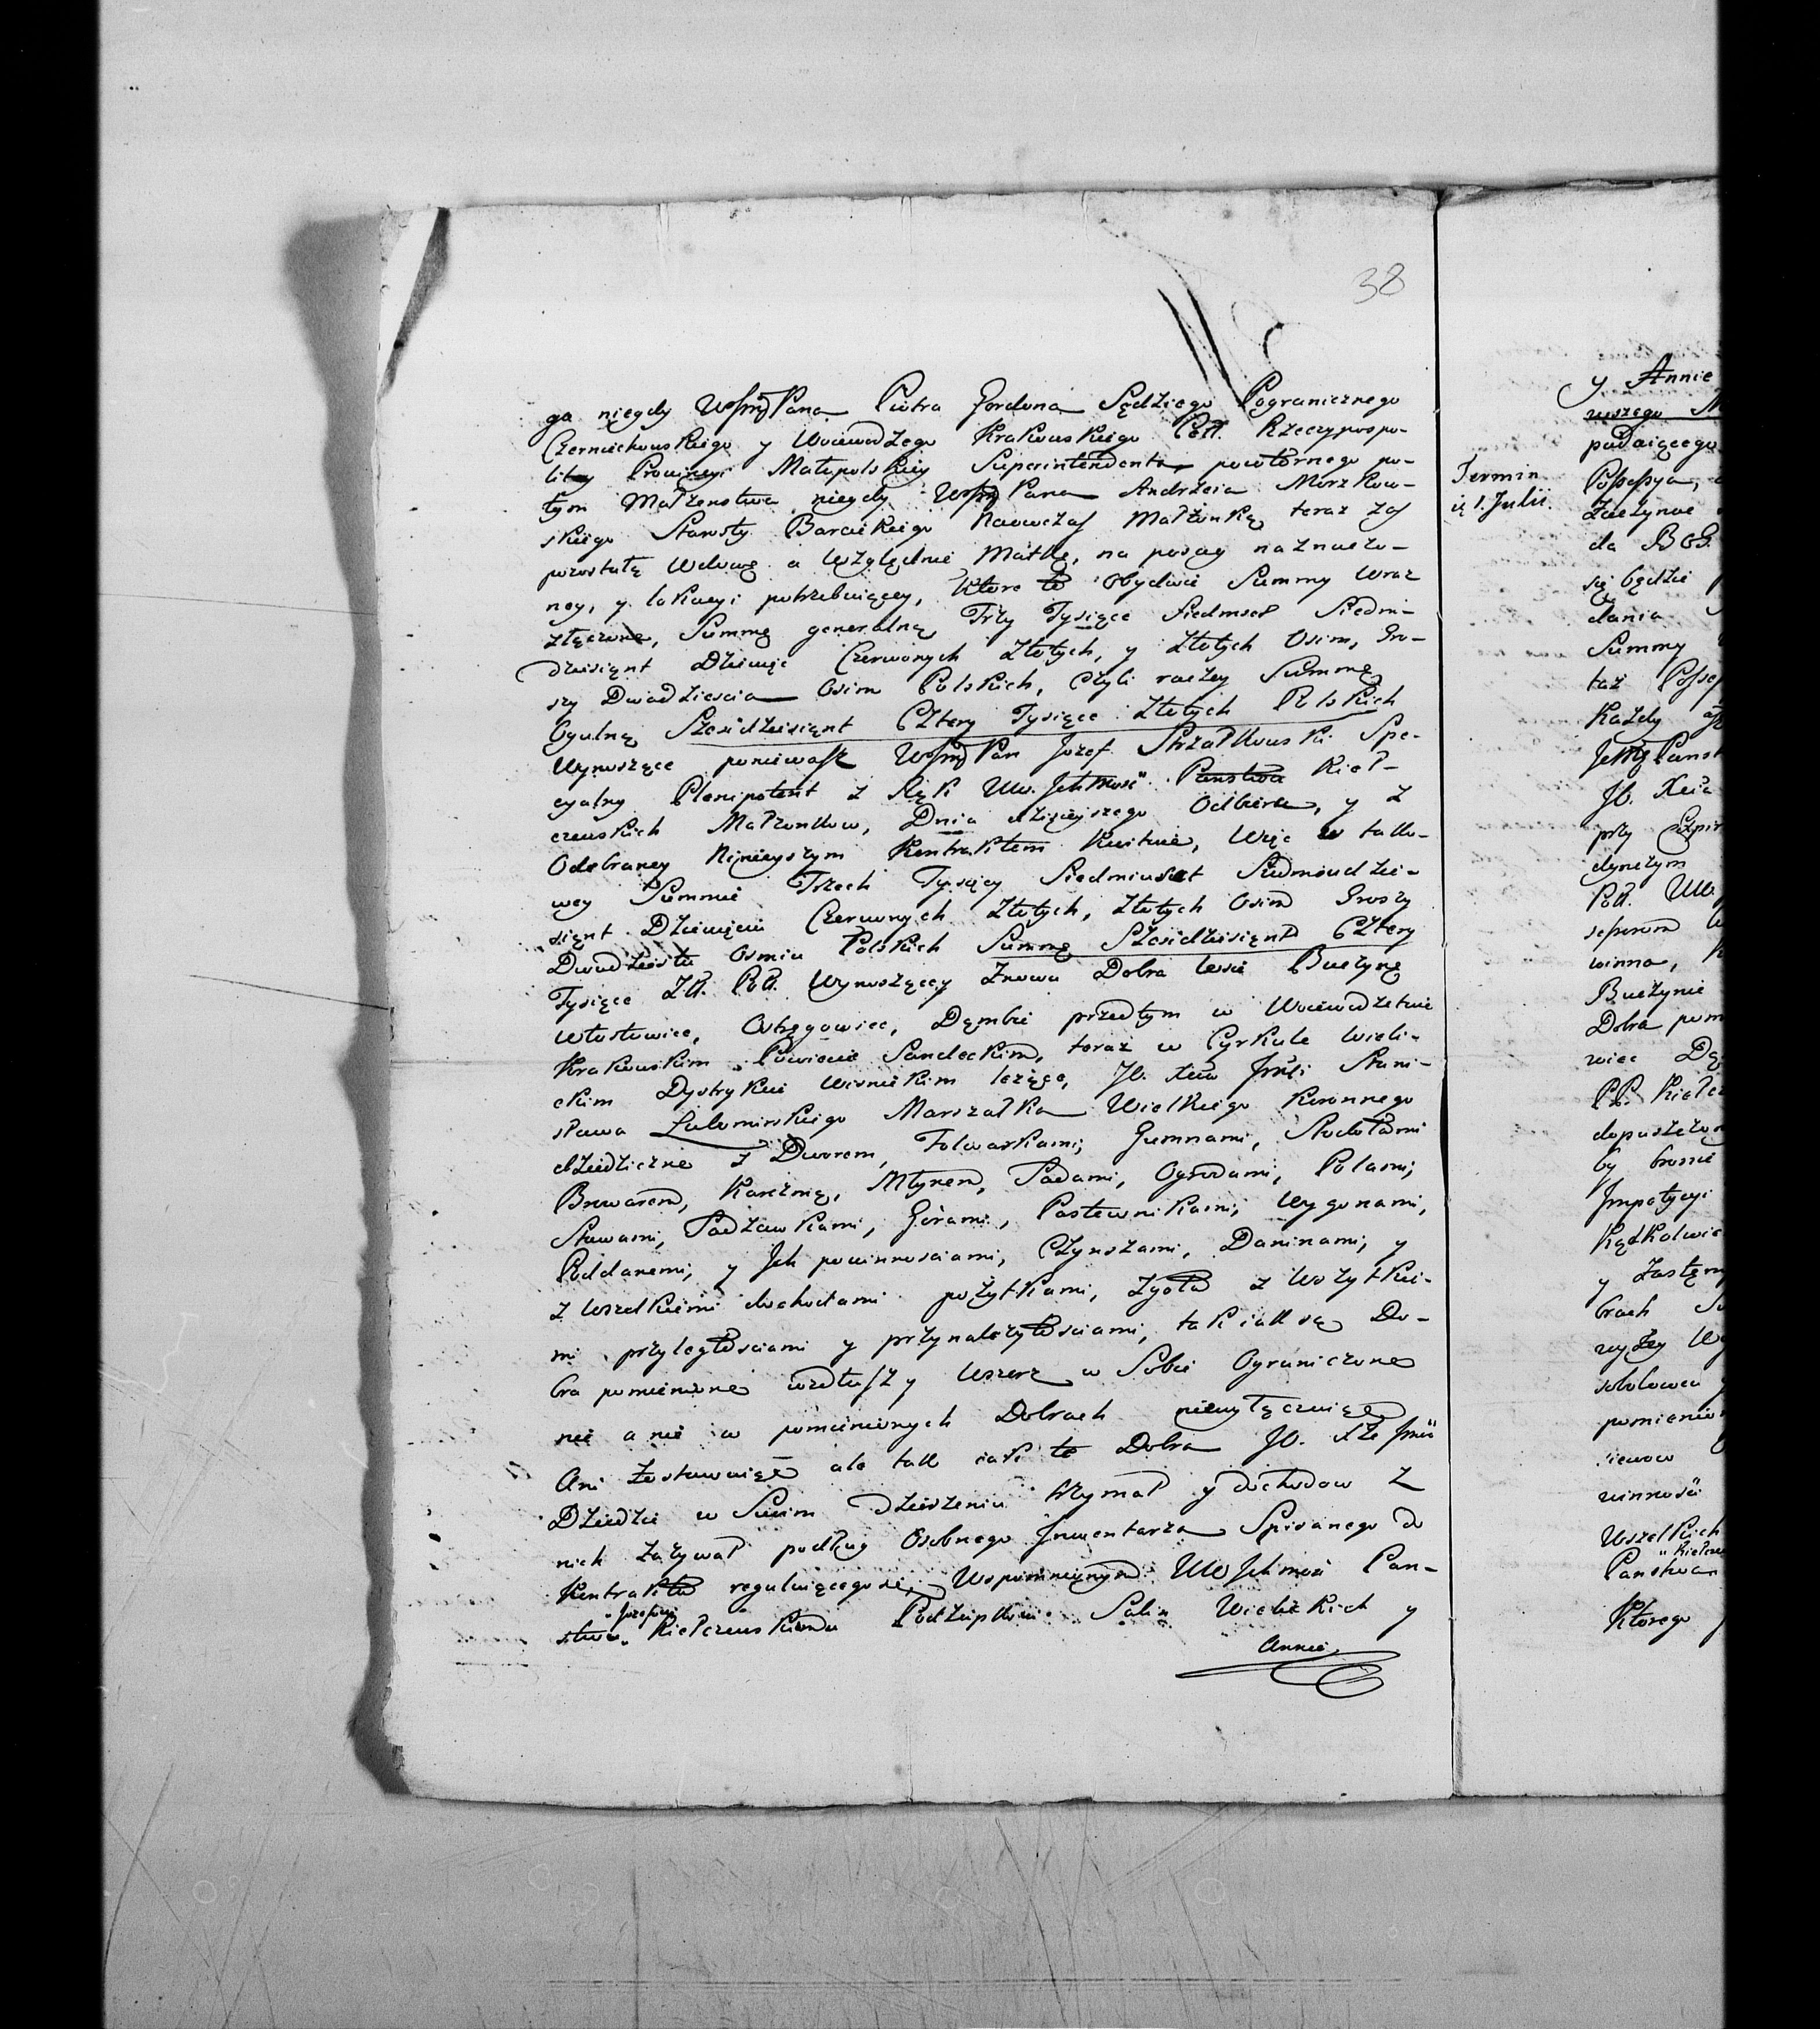 38
ga niegdy Pana Piotra Gordona Sędziego Pogranicznego
Czerniechowskiego y Woiewodzego Krakowskiego Rzeczypospo-
litey Prowincyi Małopolskiey Superintendenta, powtornego po-
tym Małzenstwa niegdy Pana Andrzeia Morzkow-
skiego Starosty Barcickiego naowczas Małżonkę teraz zas
pozostałą wdowę a względnie Matkę, na posag naznaczo-
ney, y lokacyi potrzebuiącey, ktore to obydwie Summy wraz
złączone, Summę generalną Trzy Tysiące Siedmset Siedm-
dziesiąt Dziewięc Czerwonych Złotych, y Złotych Osim, Gro-
szy Dwadziescia Osim Polskich, czyli raczey Summę
Ogulną Szesidziesiąnt Cztery Tysiące Złotych Polskich
wynoszące poniewasz Pan Jozef Strzałkowski Spe-
cyalny Plenipotent z Rąk Ww. Ichmosć Panstwa Kieł-
czewskich Małzonkow, Dnia dzisieyszego odbiera, y z
Odebraney Ninieyszym Kontraktem kwituie, więc w tako-
wey Summie Trzech Tysięcy Siedmiuset Siedmiudzie-
siąnt Dziewięciu Czerwonych Złotych, Złotych Osim Groszy
Dwudziestu Osmiu Polskich Summę Szesidziesiąnt Cztery
Tysiące Zł. Pol. wynoszącey Znowu Dobra wsie Buczynę
Włostowice, Ostręgowiec, Dąmbie przedtym w Woiewodztwie
Krakowskim Powiecie Sandeckim, teraz w Cyrkule Wieli-
ckim Dystrykcie Wisnickim leżące, JO. Xcia Jmći Stani-
sława Lubomirskiego Marszałka Wielkiego Koronnego
dziedziczne z Dworem, Folwarkami, Gumnami, Stodołami
Browarem, Karczmą, Młynem, Sadami, Ogrodami, Polami,
Stawami, Sadzawkami, Górami, Pastewnikami, wygonami,
Poddanemi, y Jch powinnosciami, Czynszami, Daninami, y
z wszelkiemi dochodami pożytkami, zgoła z wszytkie-
mi przyległościami y przynależytościami, tak iak są Do-
bra pomienione wzdłusz y wszerz w Sobie Ograniczone
nic a nic w pomienionych Dobrach niewyłączaiąc
Ani zostawuiąc ale tak iak te Dobra JO. Xże Jmć
Dziedzic w Swim Dzierzeniu trzymał y dochodow z
nich zażywał podług Osobnego Jnwentarza Spisanego do
Kontraktu reguluiącego się, Wspomnionym Ichmość Pan-
stwu Jozefowi Kiełczewskiemu Podżupkowi Salin Wielickich y
Annie

Termin
1. Julii.

y Annie
podaiącego
Possessya,
Zaczynać
da BOG
się będzie
dania
Summy
taż
Każdy
JO. Xcia
przy
dyńczym
winna,
Buczynie
Dobra pom
wiec Dą
PP. Kiełcz
dopuszczon
by bronić
Impetycyi
kądkolwie
y Zastęp
brach
wyżey
pomienio
winność
Wszelkich
Kiełcz
Panstwa
Ktorego